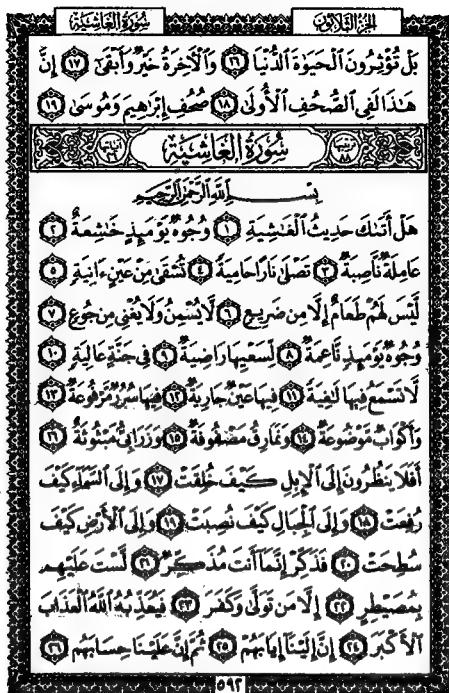 الجزء الثلاثون سورة الغاشية
بَلْ تُؤْثِرُونَ الْحَيَوٰةَ الدُّنْيَا ١٦ وَالْآخِرَةُ خَيْرٌ وَأَبْقَىٰ ١٧ إِنَّ
هَٰذَا لَفِي الصُّحُفِ الْأُولَىٰ ١٨ صُحُفِ إِبْرَٰهِيمَ وَمُوسَىٰ ١٩
ترتيبها ٨٨ سُورَةُ الْغَاشِيَةِ آياتها ٢٦
بِسْمِ اللَّهِ الرَّحْمَٰنِ الرَّحِيمِ
هَلْ أَتَىٰكَ حَدِيثُ الْغَٰشِيَةِ ١ وُجُوهٌ يَوْمَئِذٍ خَٰشِعَةٌ ٢
عَامِلَةٌ نَّاصِبَةٌ ٣ تَصْلَىٰ نَارًا حَامِيَةً ٤ تُسْقَىٰ مِنْ عَيْنٍ ءَانِيَةٍ ٥
لَّيْسَ لَهُمْ طَعَامٌ إِلَّا مِن ضَرِيعٍ ٦ لَّا يُسْمِنُ وَلَا يُغْنِي مِن جُوعٍ ٧
وُجُوهٌ يَوْمَئِذٍ نَّاعِمَةٌ ٨ لِّسَعْيِهَا رَاضِيَةٌ ٩ فِي جَنَّةٍ عَالِيَةٍ ١٠
لَّا تَسْمَعُ فِيهَا لَٰغِيَةً ١١ فِيهَا عَيْنٌ جَارِيَةٌ ١٢ فِيهَا سُرُرٌ مَّرْفُوعَةٌ ١٣
وَأَكْوَابٌ مَّوْضُوعَةٌ ١٤ وَنَمَارِقُ مَصْفُوفَةٌ ١٥ وَزَرَابِيُّ مَبْثُوثَةٌ ١٦
أَفَلَا يَنظُرُونَ إِلَى الْإِبِلِ كَيْفَ خُلِقَتْ ١٧ وَإِلَى السَّمَآءِ كَيْفَ
رُفِعَتْ ١٨ وَإِلَى الْجِبَالِ كَيْفَ نُصِبَتْ ١٩ وَإِلَى الْأَرْضِ كَيْفَ
سُطِحَتْ ٢٠ فَذَكِّرْ إِنَّمَآ أَنتَ مُذَكِّرٌ ٢١ لَّسْتَ عَلَيْهِم
بِمُصَيْطِرٍ ٢٢ إِلَّا مَن تَوَلَّىٰ وَكَفَرَ ٢٣ فَيُعَذِّبُهُ اللَّهُ الْعَذَابَ
الْأَكْبَرَ ٢٤ إِنَّ إِلَيْنَآ إِيَابَهُمْ ٢٥ ثُمَّ إِنَّ عَلَيْنَا حِسَابَهُم ٢٦
٥٩٢